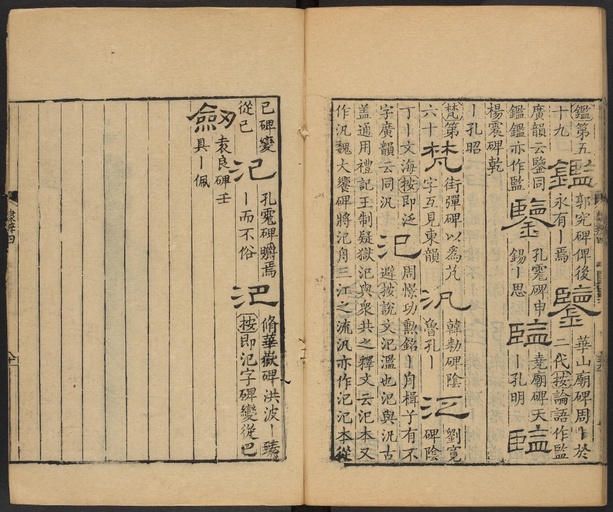 鑑第五
十九
鑑
郭究碑俾後
永有丨焉
鑒
華山廟碑周丨於
二代按論語作監
廣韻云鑒同
鑑鑑亦作監
鑒
孔彪碑申
錫丨思
監
堯廟碑天
丨孔明
監
楊震碑乾
丨孔昭
梵第
六十
梵
街彈碑以為
字互見東韻
汎
韓勑碑陰
魯孔丨
氾
劉寬
碑陰
丁丨文海按即泛
字廣韻云同汎
氾
周憬功勳銘丨舟楫子有不
避按說文氾濫也氾與汎古
蓋通用禮記王制疑獄氾與衆共之釋文云氾本又
作汎魏大饗碑將氾舟三江之流汎亦作氾氾本從
㔾碑變
從己
氾
孔彪碑焉
丨而不俗
氾
脩華嶽碑洪波丨臻
按即氾字碑變從巴
劒
袁良碑壬
具丨佩
隸辨四